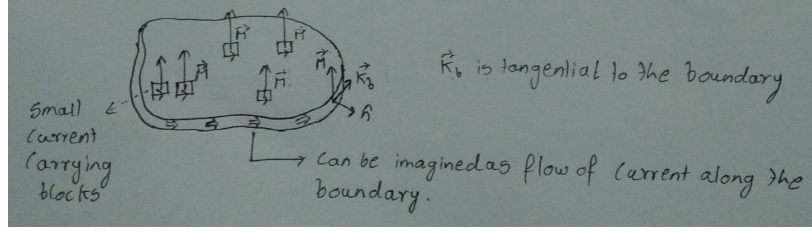 M⃗
M⃗
M⃗
M⃗
M⃗
K⃗b
n̂
K⃗b is tangential to the boundary
Small
Current
Carrying
blocks
Can be imagined as flow of Current along the
boundary.